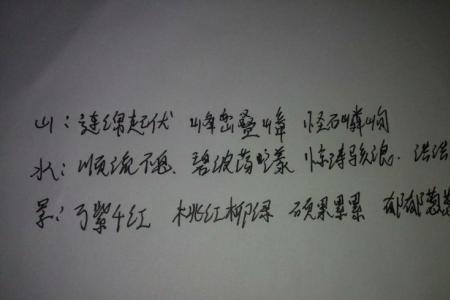 山：连绵起伏 峰峦叠嶂 怪石嶙峋
水：川流不息、碧波荡漾 惊涛骇浪、浩浩
景：万紫千红 桃红柳绿 硕果累累 郁郁葱葱